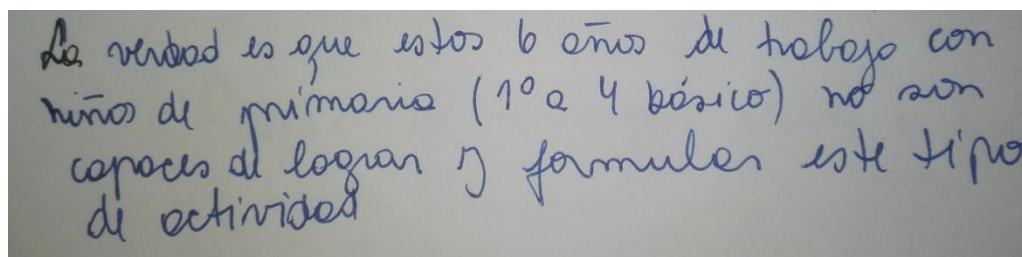 La verdad es que estos 6 años de trabajo con
niños de primaria (1º a 4 básico) no son
capaces de lograr y formular este tipo
de actividad